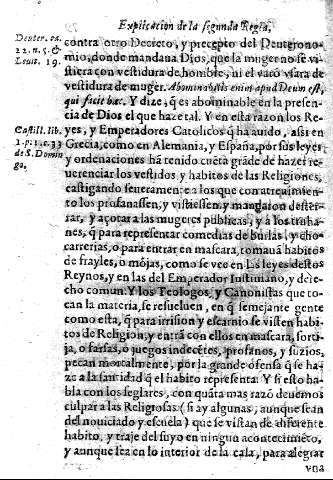 Explicacion de la segunda Regla,
Deuter. ca.
22. n. 5. &
Leuit. 19.
contra otro Decreto, y precepto del Deuterono-
mio, donde mandaua Dios, que la muger no se vi-
stiera con vestidura de hombre, ni el varõ vsara de
vestidura de muger. Abominabilis enim apud Deum est,
qui facit hæc. Y dize, q̃ es abominable en la presen-
cia de Dios el que haze tal. Y en esta razon los Re-
yes, y Emperadores Catolicos q̃ ha auido, assi en
Castill. lib.
1. p. 1. c. 33
de S. Domin
go.
Grecia, como en Alemania, y España, por sus leyes
y ordenaciones hã tenido cuẽta grãde de hazer re-
uerenciar los vestidos y habitos de las Religiones,
castigando seueramente a los que con atreuimiẽn-
to los profanassen, y vistiessen: y mandaron dester-
rar, y açotar a las mugeres publicas, y a los truha-
nes, q̃ para representar comedias de burlas, y cho-
carrerias, o para entrar en mascara, tomauã habitos
de frayles, o mõjas, como se vee en las leyes destos
Reynos, y en las del Emperador Iustiniano, y dere-
cho comun. Y los Teologos, y Canonistas que to-
can la materia, se resueluen, en q̃ semejante gente
como esta, q̃ para irrision y escarnio se visten habi-
tos de Religion, y entrã con ellos en mascara, sorti-
ja, o farsas, o juegos indecẽtes, profanos, y suzios,
pecan mortalmente, por la grande ofensa q̃ se ha-
ze a la santidad q̃ el habito representa. Y si esto ha-
bla con los seglares, con quãta mas razõ deuemos
culpar a las Religiosas (si ay algunas, aunque sean
del nouiciado y escuela) que se vistan de diferente
habito, y traje del suyo en ningun acontecimiẽto,
y aunque sea en lo interior de la casa, para alegrar
vna